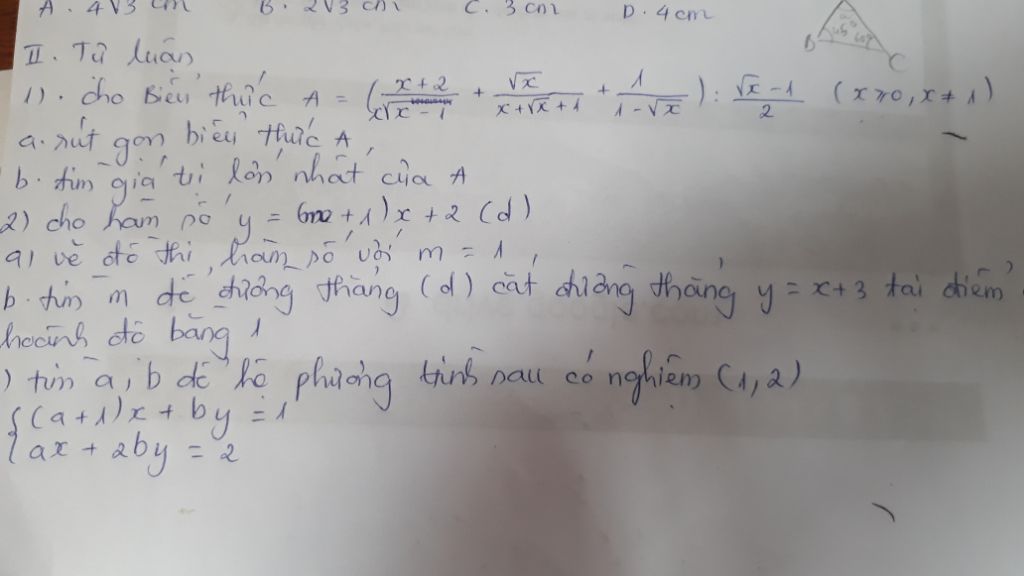 A. 4√3 cm B. 2√3 cm C. 3 cm D. 4 cm
B C
II. Tự luận
1). cho Biểu thức A = ((x+2)/(x√x - 1) + √x/(x+√x+1) + 1/(1-√x)) : (√x - 1)/2 (x ≥ 0, x ≠ 1)
a. rút gọn biểu thức A,
b. tìm giá trị lớn nhất của A
2) cho hàm số y = (m+1)x + 2 (d)
a) vẽ đồ thị hàm số với m = 1,
b. tìm m để đường thẳng (d) cắt đường thẳng y = x+3 tại điểm
hoành độ bằng 1
) tìm a, b để hệ phương trình sau có nghiệm (1, 2)
{(a+1)x + by = 1
ax + 2by = 2